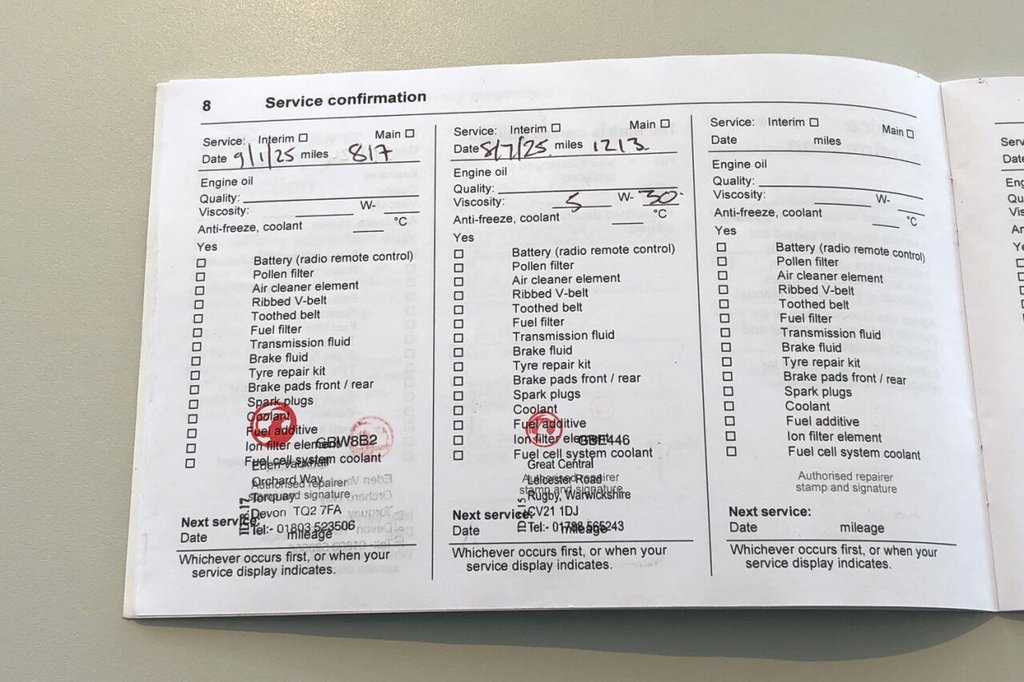 8 Service confirmation
Service: Interim Main
Date 9/1/25 miles 817
Engine oil
Quality:
Viscosity: W-
Anti-freeze, coolant °C
Yes
Battery (radio remote control)
Pollen filter
Air cleaner element
Ribbed V-belt
Toothed belt
Fuel filter
Transmission fluid
Brake fluid
Tyre repair kit
Brake pads front / rear
Spark plugs
Coolant
Fuel additive
Ion filter element
GBW8B2
Fuel cell system coolant
Eden Vauxhall
Orchard Way
Authorised repairer
stamp and signature
Torquay
Devon TQ2 7FA
Next service:
Tel:- 01803 523506
Date mileage
Whichever occurs first, or when your
service display indicates.
Service: Interim Main
Date 8/7/25 miles 1213
Engine oil
Quality:
Viscosity: 5 W- 30
Anti-freeze, coolant °C
Yes
Battery (radio remote control)
Pollen filter
Air cleaner element
Ribbed V-belt
Toothed belt
Fuel filter
Transmission fluid
Brake fluid
Tyre repair kit
Brake pads front / rear
Spark plugs
Coolant
Fuel additive
Ion filter element
GBE446
Fuel cell system coolant
Great Central
Leicester Road
Authorised repairer
stamp and signature
Rugby, Warwickshire
CV21 1DJ
Next service:
Tel:- 01788 565243
Date mileage
Whichever occurs first, or when your
service display indicates.
Service: Interim Main
Date miles
Engine oil
Quality:
Viscosity: W-
Anti-freeze, coolant °C
Yes
Battery (radio remote control)
Pollen filter
Air cleaner element
Ribbed V-belt
Toothed belt
Fuel filter
Transmission fluid
Brake fluid
Tyre repair kit
Brake pads front / rear
Spark plugs
Coolant
Fuel additive
Ion filter element
Fuel cell system coolant
Authorised repairer
stamp and signature
Next service:
Date mileage
Whichever occurs first, or when your
service display indicates.